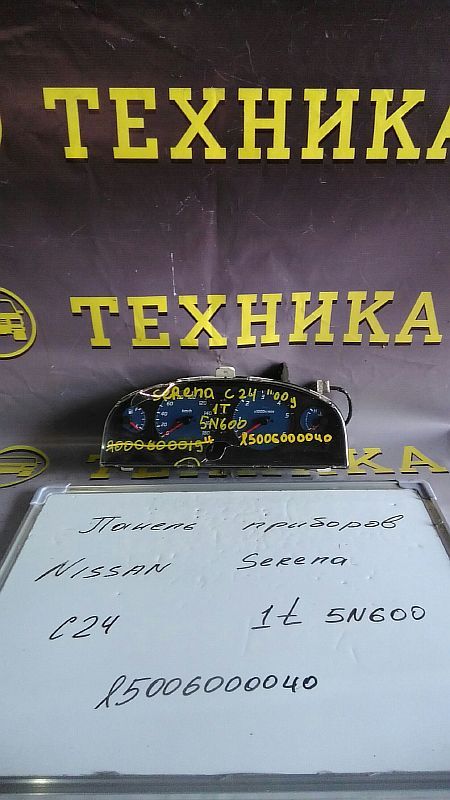 ТЕХНИКА
ТЕХНИКА
Serena C24 "00g
1T
5N600
l5006000040
ТЕХНИКА
Панель приборов
Nissan Serena
C24 1t 5N600
l5006000040